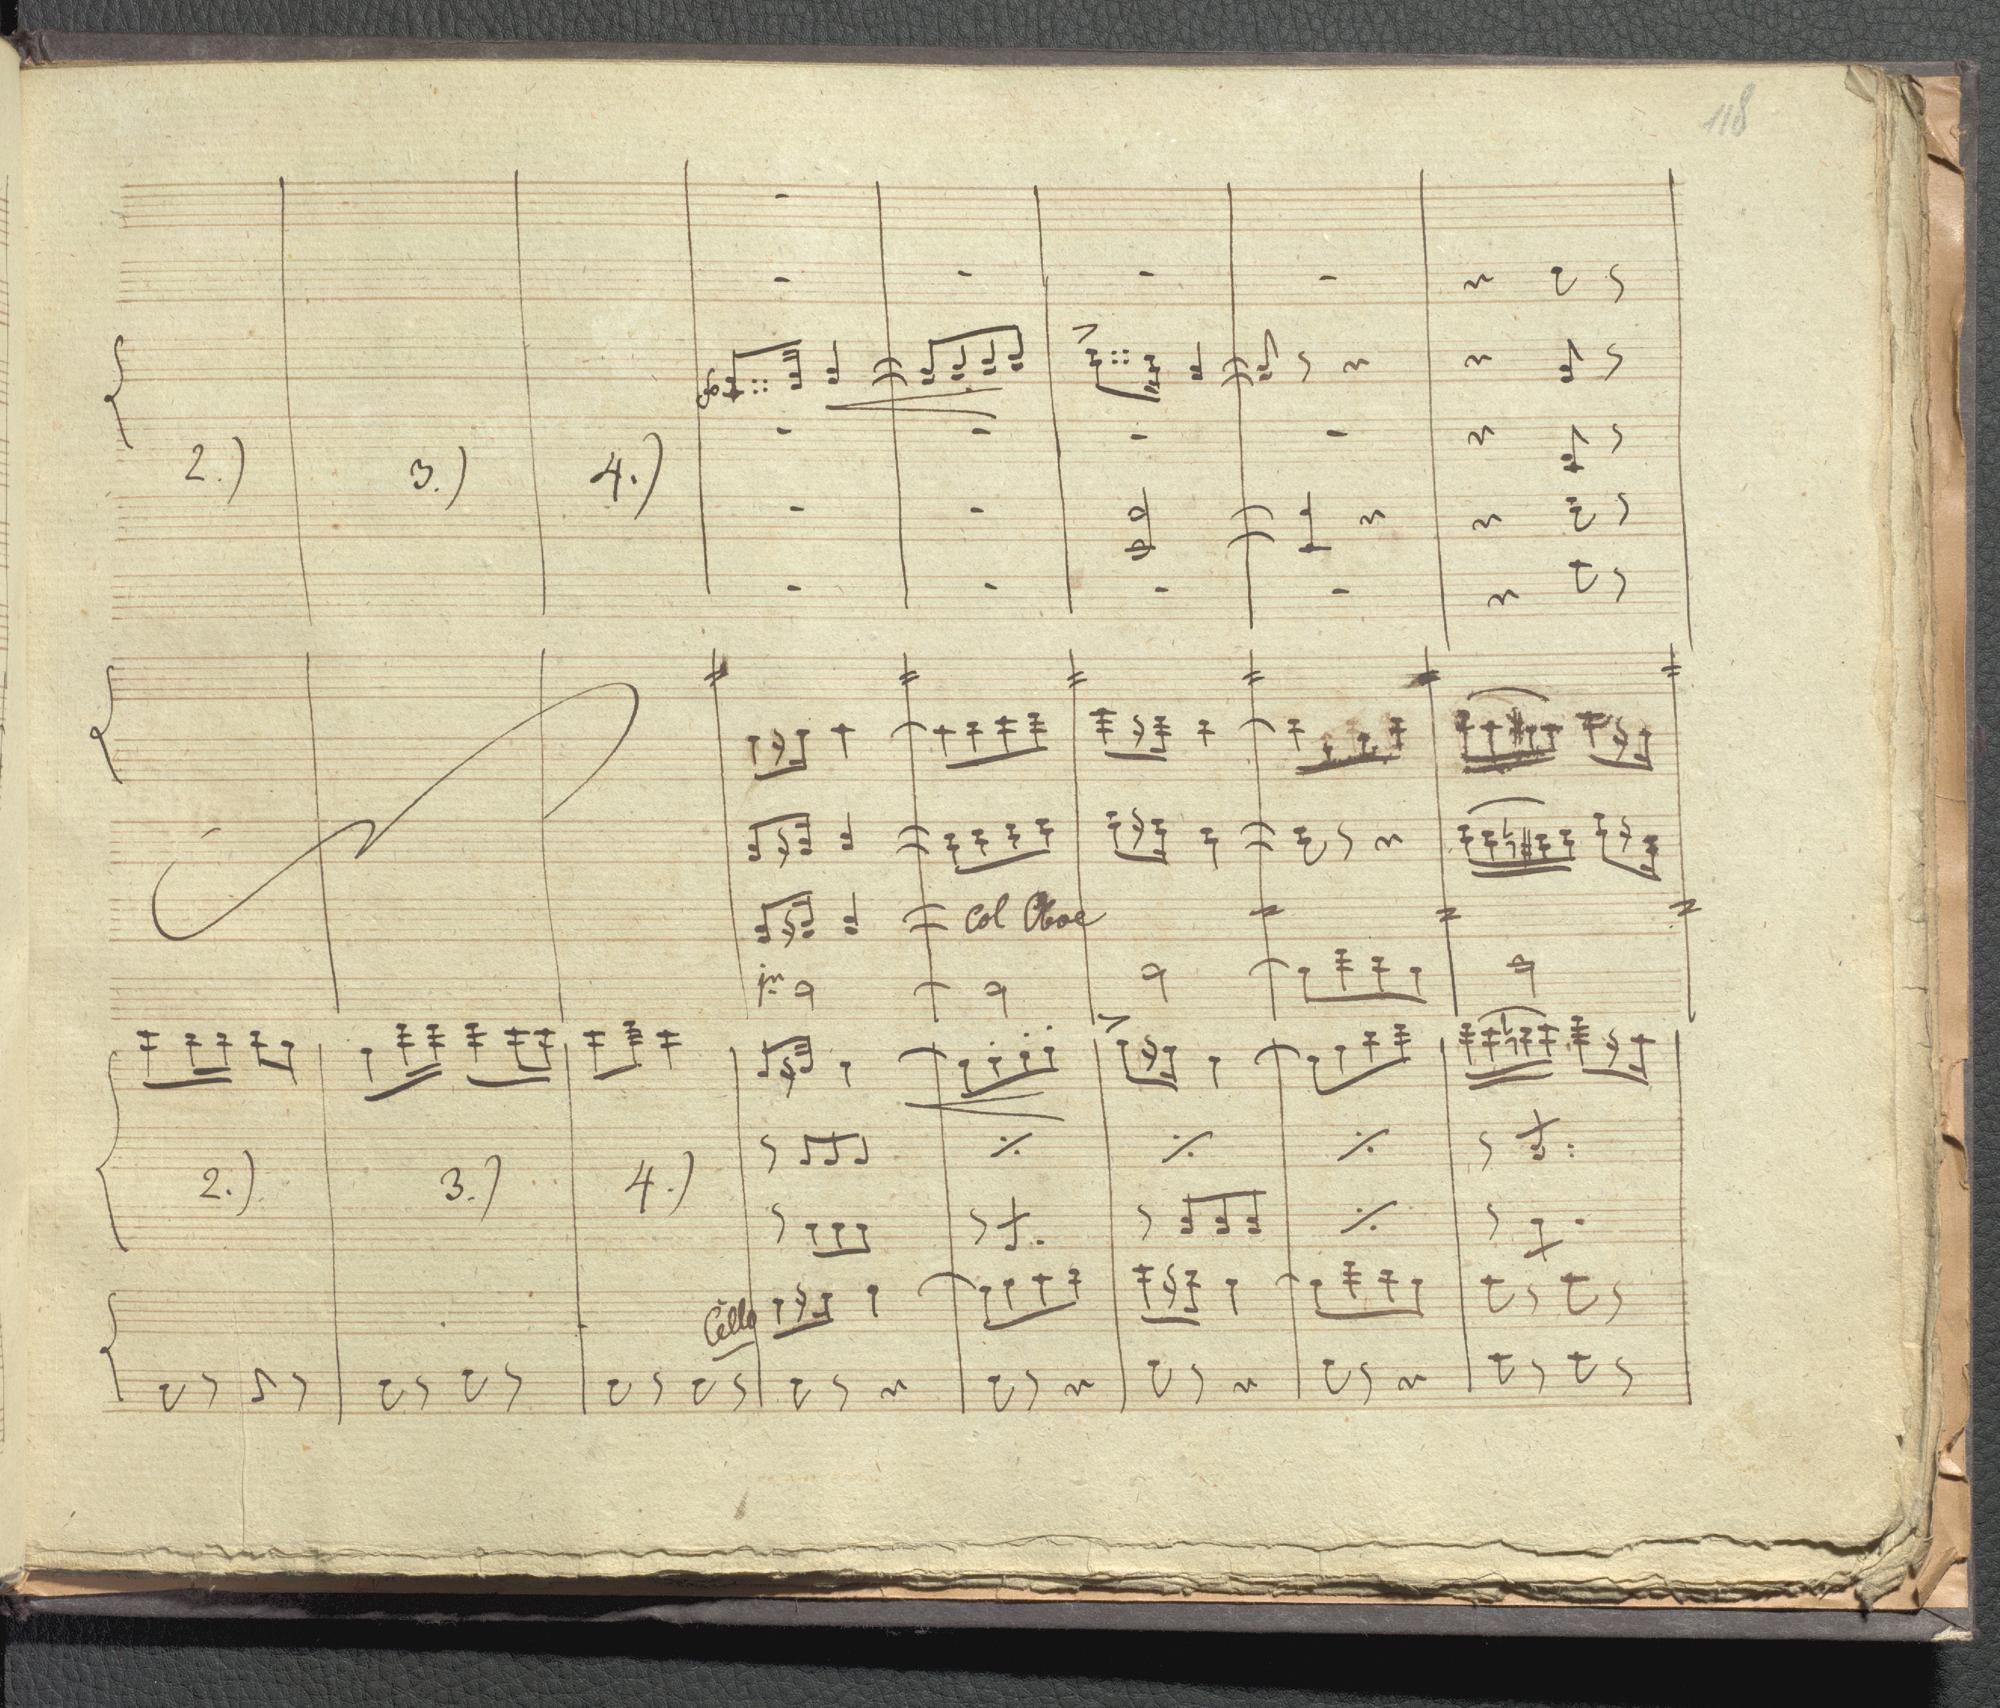 118
2.) 3.) 4.)
col Oboe
1mo
2.) 3.) 4.)
Cello